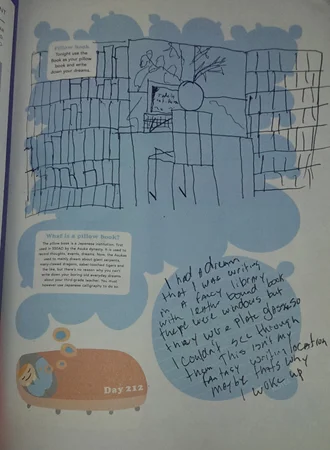 Pillow book
Tonight use the
Book as your pillow
book and write
down your dreams.
What is a pillow Book?
The pillow book is a Japanese institution, first
used in
record thoughts, events, dreams. Now, the
used to mainly dream about giant serpents,
many-crested dragons, and
the like, but there's no reason why you can't
write down your boring old everyday dreams
about your third grade teacher. You must
however use Japanese calligraphy to do so.
Day 212
I had a dream
that I was writing
in a fancy library
with leather bound books
there were windows but
they were plate glass so
I couldn't see through
them This isn't my
fantasy writing location
maybe that's why
I woke up